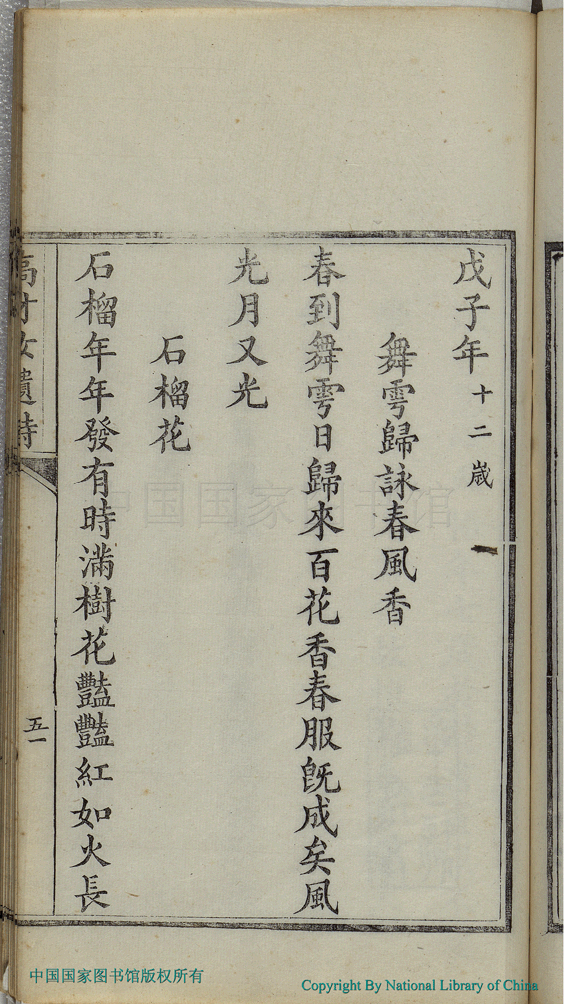 戊子年 十二歲
舞雩歸詠春風香
春到舞雩日歸來百花香春服既成矣風
光月又光
石榴花
石榴年年發有時滿樹花豔豔紅如火長
高才女遺詩
五一
中国国家图书馆
中国国家图书馆版权所有
Copyright By National Library of China